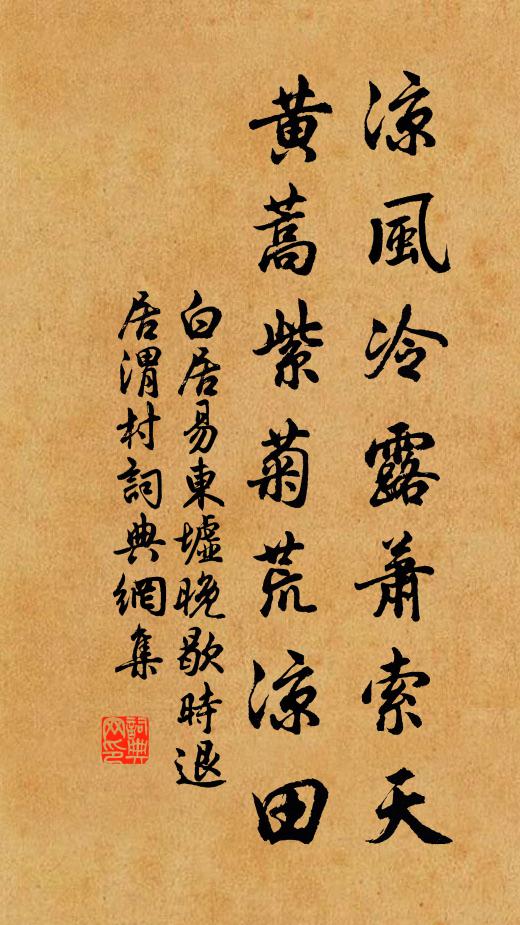 凉風冷露蕭索天
黃蒿紫菊荒凉田
白居易東墟晚歇時退
居渭村詞典網集
詞典
网印